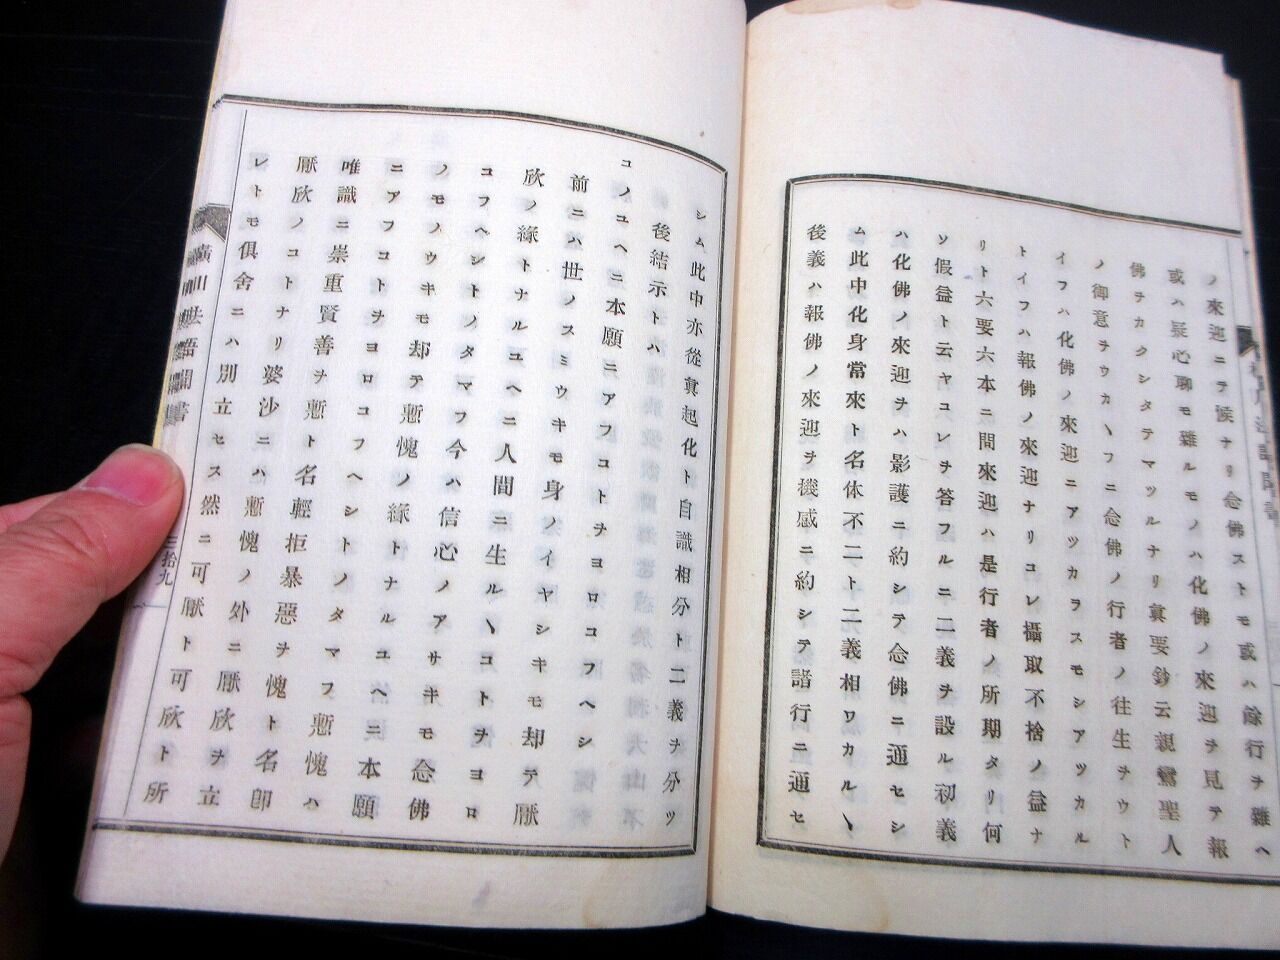 ノ來迎ニテ候ナリ念佛ストモ或ハ餘行ヲ雜ヘ
或ハ疑心聊モ雜ルモノハ化佛ノ來迎ヲ見テ報
佛ヲカクシタテマツルナリ眞要鈔云親鸞聖人
ノ御意ヲウカヽフニ念佛ノ行者ノ往生ヲウト
イフハ化佛ノ來迎ニアツカラスモシアツカル
トイフハ報佛ノ來迎ナリコレ攝取不捨ノ益ナ
リト六要六本ニ問來迎ハ是行者ノ所期タリ何
ソ假益ト云ヤコレヲ答フルニ二義ヲ設ル初義
ハ化佛ノ來迎ヲハ影護ニ約シテ念佛ニ通セシ
ム此中化身當來ト名体不二ト二義相ワカルヽ
後義ハ報佛ノ來迎ヲ機感ニ約シテ諸行ニ通セ
シム此中亦從眞起化ト自識相分ト二義ヲ分ツ
後結示トハ
コノユヘニ本願ニアフコトヲヨロコフヘシ
前ニハ世ノスミウキモ身ノイヤシキモ却テ厭
欣ノ緣トナルユヘニ人間ニ生ルヽコトヲヨロ
コフヘシトノタマフ今ハ信心ノアサキモ念佛
ノモノウキモ却テ慙愧ノ緣トナルユヘニ本願
ニアフコトヲヨロコフヘシトノタマフ慙愧ハ
唯識ニ崇重賢善ヲ慙ト名輕拒暴惡ヲ愧ト名卽
厭欣ノコトナリ婆沙ニハ慙愧ノ外ニ厭欣ヲ立
レトモ俱舍ニハ別立セス然ニ可厭ト可欣ト所
橫川法語聞書
三拾九